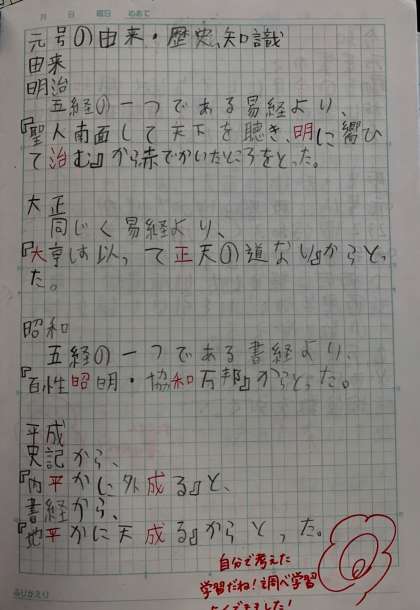 月 日 曜日 めあて
元号の由来・歴史、知識
由来
明治
五経の一つである易経より、
『聖人南面して天下を聴き、明に響ひ
て治む』から赤でかいたところをとった。
大正
同じく易経より、
『大亨は以って正天の道なり』からとっ
た。
昭和
五経の一つである書経より、
『百性昭明・協和万邦』からとった。
平成
史記から、
『内平かに外成る』と、
書経から、
『地平かに天成る』からとった。
自分で考えた
学習だね！調べ学習
よくできました！
ふりかえり